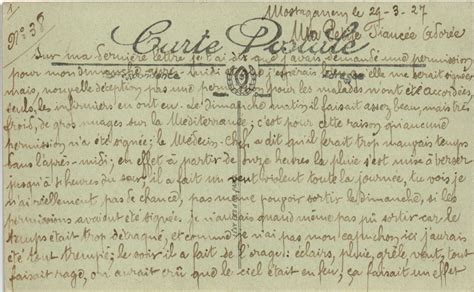 Nº 38
Mostaganem le 29-3-27
Ma Petite Fiancée Adorée
Carte Postale
Sur ma dernière lettre je t'ai dit que j'avais demandé une permission
pour mon dimanche midi j'espérais elle me serait
mais, nouvelle déception pas une pour les malades n'ont été accordées,
seuls, les infirmiers en ont eu. Le dimanche matin, il faisait assez beau, mais très
froid, de gros nuages sur la Méditerranée; c'est pour cette raison qu'aucune
permission n'a été signée; le Médecin-Chef a dit qu'il ferait trop mauvais temps
dans l'après-midi, en effet à partir de onze heures la pluie s'est mise à verser
jusqu'à 4 heures du soir, il a fait un vent violent toute la journée, tu vois je
n'ai réellement pas de chance, pas même pouvoir sortir le dimanche, si les
permissions avaient été signées je n'aurais quand même pas pû sortir car le
temps était trop détraqué, et comme je n'ai pas mon capuchon, ici j'aurais
été tout trempé; le soir il a fait de l'orage: éclairs, pluie, grêle, vent, tout
faisait rage, on aurait crû que le ciel était en feu, ça faisait un effet